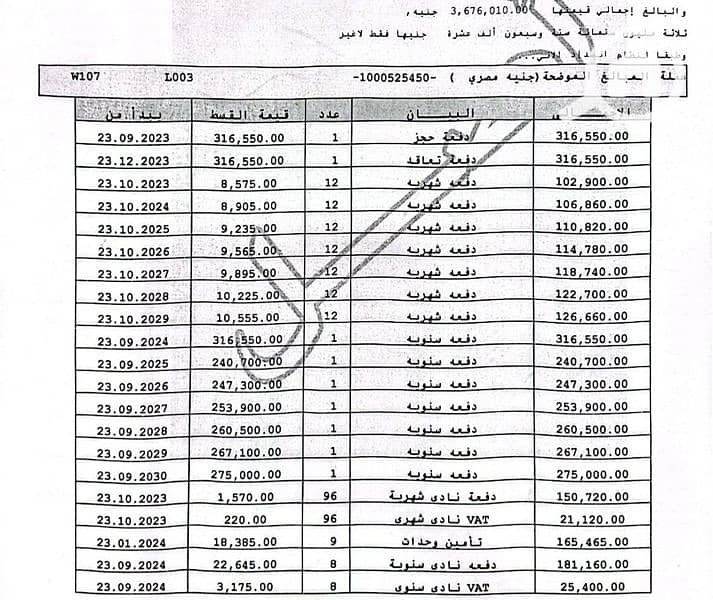 والبالغ إجمالي قيمتها 3,676,010.00 جنيه,
ثلاثة مليون ستمائة ستة وسبعون ألف عشرة جنيها فقط لاغير
وطبقا لنظام السداد الاتى...
عملة المبالغ الموضحة (جنيه مصري ) -1000525450- L003 W107
عدد قيمة القسط يبدأ من البيان
316,550.00 دفعة حجز 1 316,550.00 23.09.2023
316,550.00 دفعة تعاقد 1 316,550.00 23.12.2023
102,900.00 دفعه شهريه 12 8,575.00 23.10.2023
106,860.00 دفعه شهريه 12 8,905.00 23.10.2024
110,820.00 دفعه شهريه 12 9,235.00 23.10.2025
114,780.00 دفعه شهريه 12 9,565.00 23.10.2026
118,740.00 دفعه شهريه 12 9,895.00 23.10.2027
122,700.00 دفعه شهريه 12 10,225.00 23.10.2028
126,660.00 دفعه شهريه 12 10,555.00 23.10.2029
316,550.00 دفعه سنويه 1 316,550.00 23.09.2024
240,700.00 دفعه سنويه 1 240,700.00 23.09.2025
247,300.00 دفعه سنويه 1 247,300.00 23.09.2026
253,900.00 دفعه سنويه 1 253,900.00 23.09.2027
260,500.00 دفعه سنويه 1 260,500.00 23.09.2028
267,100.00 دفعه سنويه 1 267,100.00 23.09.2029
275,000.00 دفعه سنويه 1 275,000.00 23.09.2030
150,720.00 دفعة نادى شهرية 96 1,570.00 23.10.2023
21,120.00 VAT نادى شهرى 96 220.00 23.10.2023
165,465.00 تأمين وحدات 9 18,385.00 23.01.2024
181,160.00 دفعه نادى سنوية 8 22,645.00 23.09.2024
25,400.00 VAT نادى سنوى 8 3,175.00 23.09.2024